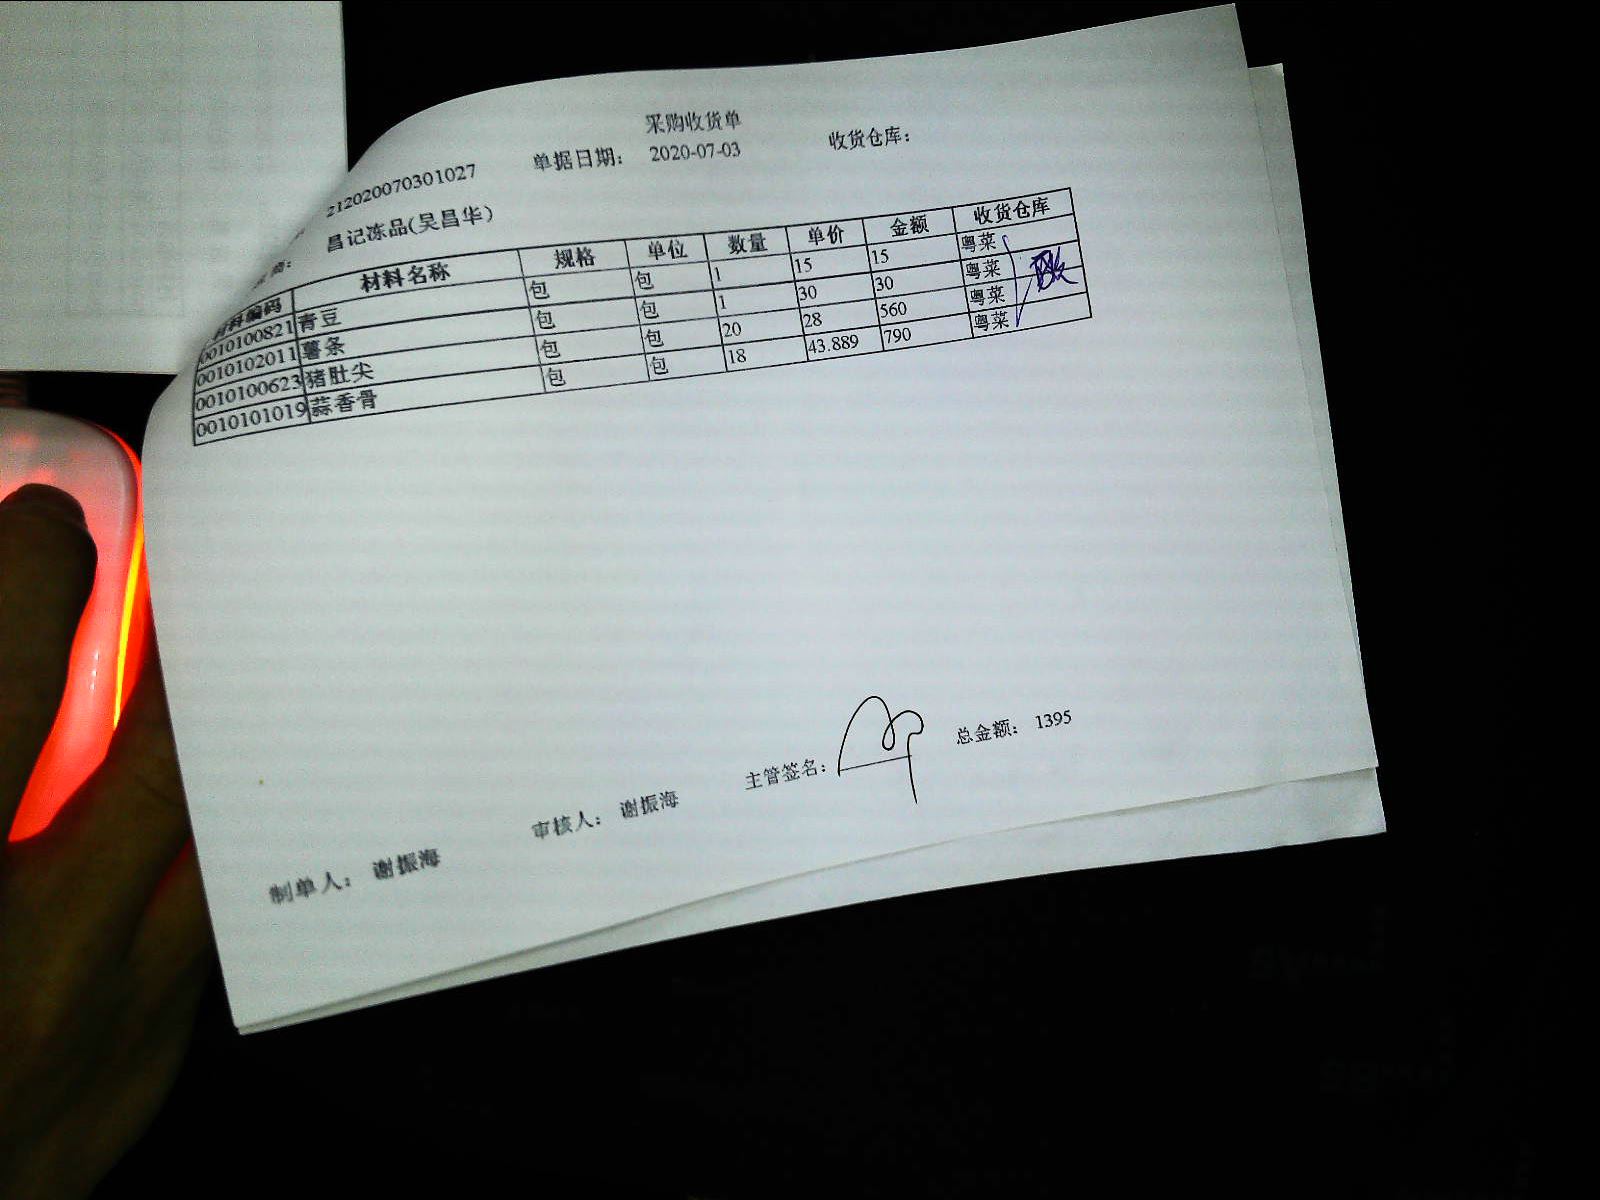 采购收货单
212020070301027 单据日期： 2020-07-03 收货仓库：
商： 昌记冻品(吴昌华)
材料编码 材料名称 规格 单位 数量 单价 金额 收货仓库
0010100821 青豆 包 包 1 15 15 粤菜
0010102011 薯条 包 包 1 30 30 粤菜
0010100623 猪肚尖 包 包 20 28 560 粤菜
0010101019 蒜香骨 包 包 18 43.889 790 粤菜
制单人： 谢振海 审核人： 谢振海 主管签名： 总金额： 1395